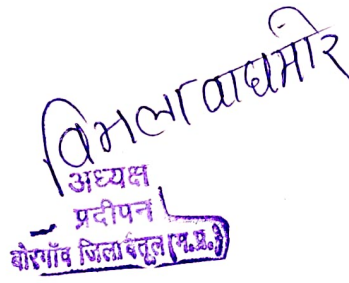 विमला वाघमोरे
अध्यक्ष
प्रदीपन
बोरगाँव जिला बैतूल (म.प्र.)